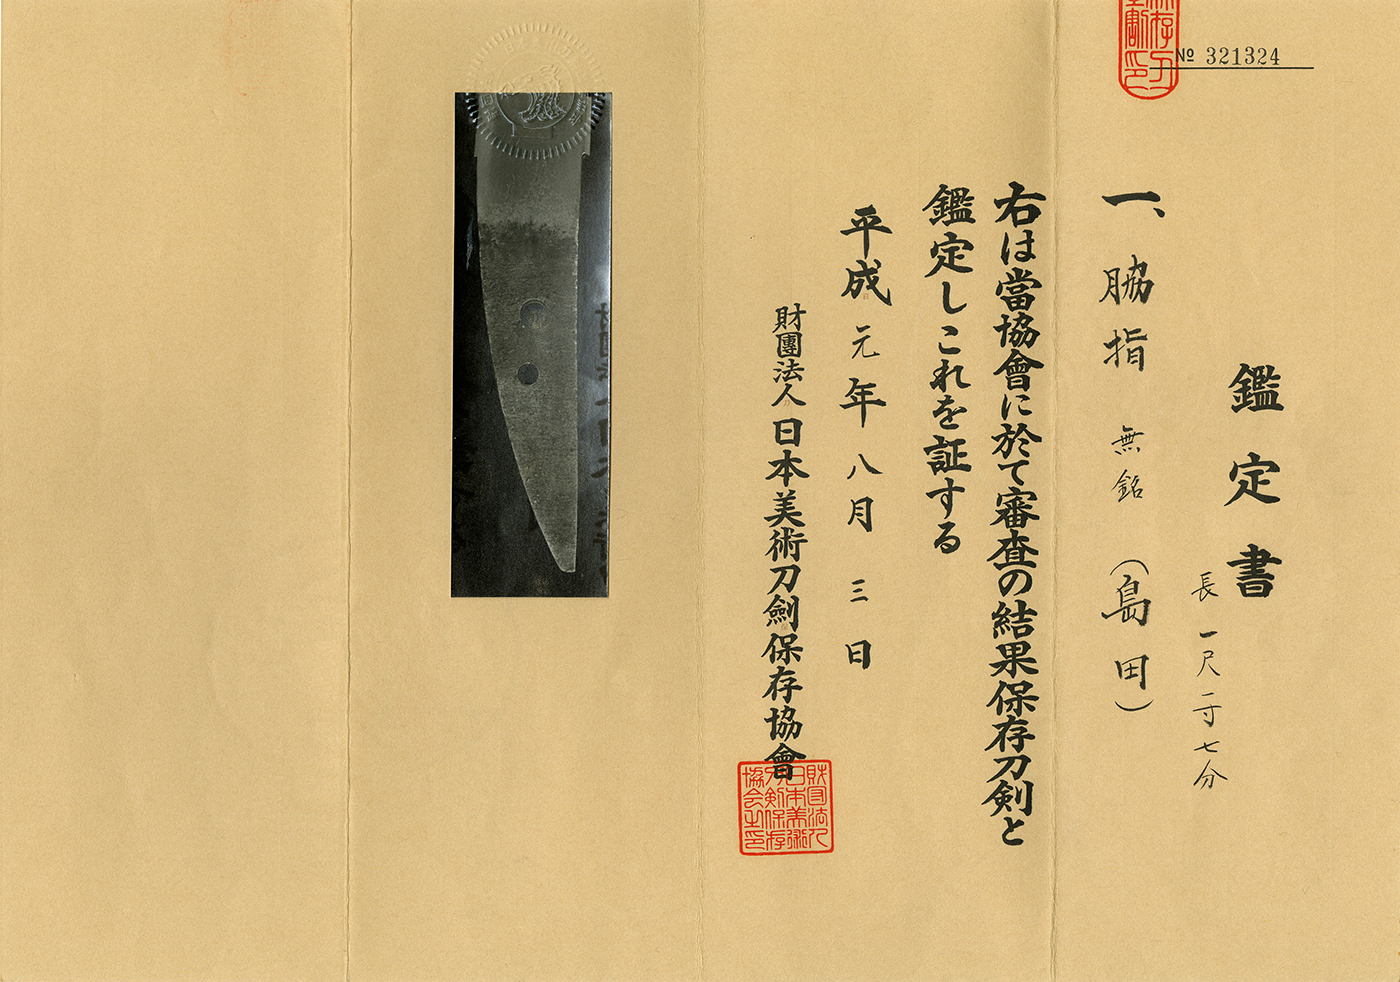 № 321324
鑑定書
長 一尺一寸七分
一、脇指 無銘 (島田)
右は當協會に於て審査の結果保存刀剣と
鑑定しこれを証する
平成元年八月三日
財團法人日本美術刀劍保存協會
財団法人
日本美術
刀剣保存
協会之印